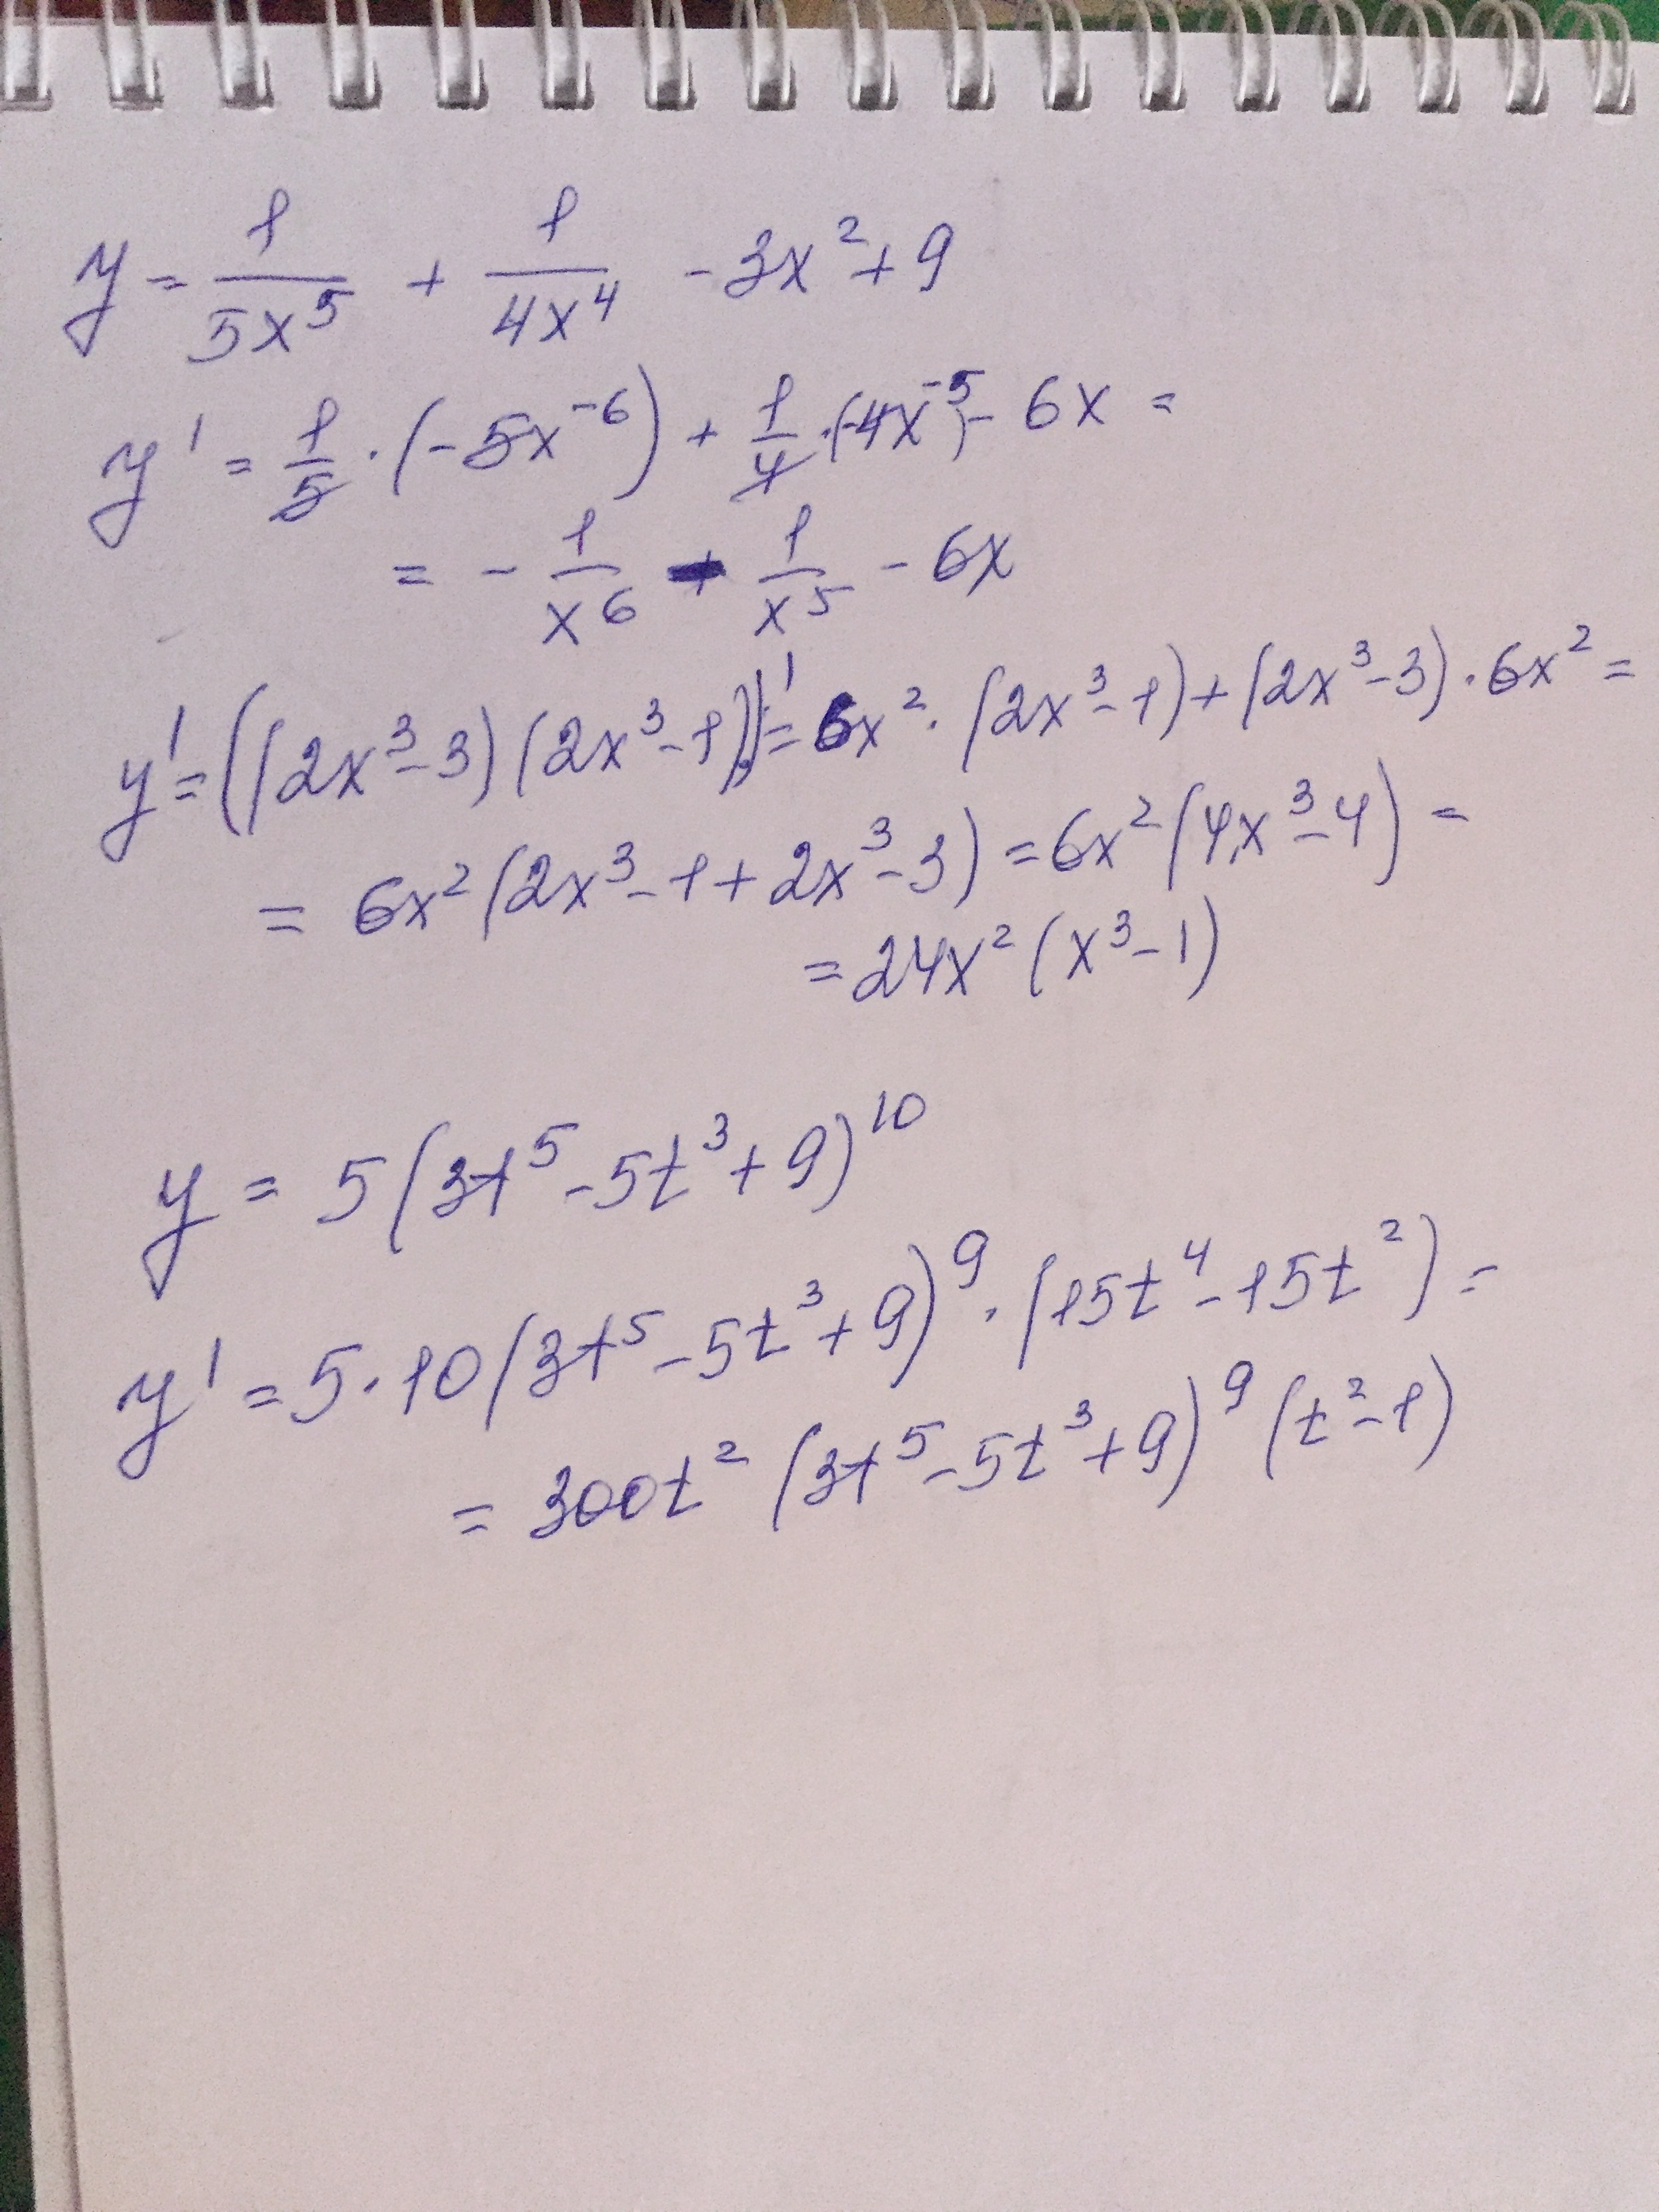 y = 1/(5x⁵) + 1/(4x⁴) - 3x² + 9
y' = 1/5 · (-5x⁻⁶) + 1/4 · (-4x⁻⁵) - 6x =
= - 1/x⁶ - 1/x⁵ - 6x
y' = ((2x³-3)(2x³-1))' = 6x² · (2x³-1) + (2x³-3) · 6x² =
= 6x²(2x³-1+2x³-3) = 6x²(4x³-4) =
= 24x²(x³-1)
y = 5(3t⁵-5t³+9)¹⁰
y' = 5·10(3t⁵-5t³+9)⁹ · (15t⁴-15t²) =
= 300t²(3t⁵-5t³+9)⁹(t²-1)